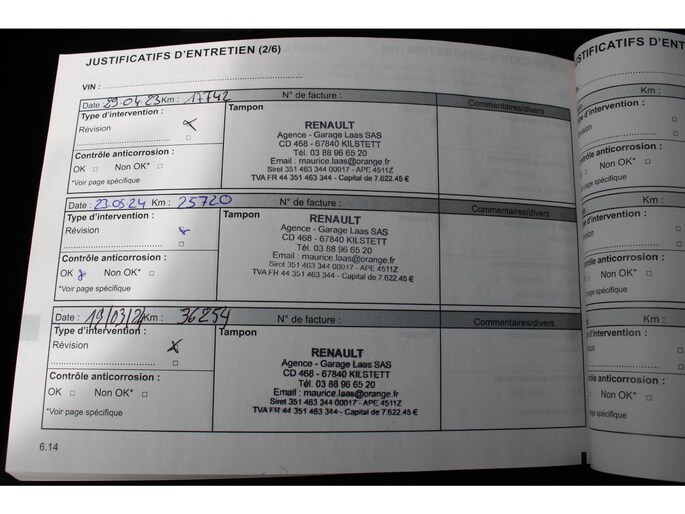 JUSTIFICATIFS D'ENTRETIEN (2/6)
VIN :
Date : 29.04.23 Km : 17742 N° de facture : Commentaires/divers
Type d'intervention : Tampon
Révision
Contrôle anticorrosion :
OK □ Non OK* □
*Voir page spécifique
RENAULT
Agence - Garage Laas SAS
CD 468 - 67840 KILSTETT
Tél. 03 88 96 65 20
Email : maurice.laas@orange.fr
Siret 351 463 344 00017 - APE 4511Z
TVA FR 44 351 463 344 - Capital de 7.622.45 €
Date : 23.05.24 Km : 25720 N° de facture : Commentaires/divers
Type d'intervention : Tampon
Révision
Contrôle anticorrosion :
OK Non OK* □
*Voir page spécifique
RENAULT
Agence - Garage Laas SAS
CD 468 - 67840 KILSTETT
Tél. 03 88 96 65 20
Email : maurice.laas@orange.fr
Siret 351 463 344 00017 - APE 4511Z
TVA FR 44 351 463 344 - Capital de 7.622.45 €
Date : Km : 36254 N° de facture : Commentaires/divers
Type d'intervention : Tampon
Révision
Contrôle anticorrosion :
OK □ Non OK* □
*Voir page spécifique
RENAULT
Agence - Garage Laas SAS
CD 468 - 67840 KILSTETT
Tél. 03 88 96 65 20
Email : maurice.laas@orange.fr
Siret 351 463 344 00017 - APE 4511Z
TVA FR 44 351 463 344 - Capital de 7.622.45 €
6.14
Km :
d'intervention :
Contrôle anticorrosion :
Non OK* □
page spécifique
Km :
d'intervention :
Contrôle anticorrosion :
Non OK* □
page spécifique
Km :
d'intervention :
anticorrosion :
Non OK* □
page spécifique